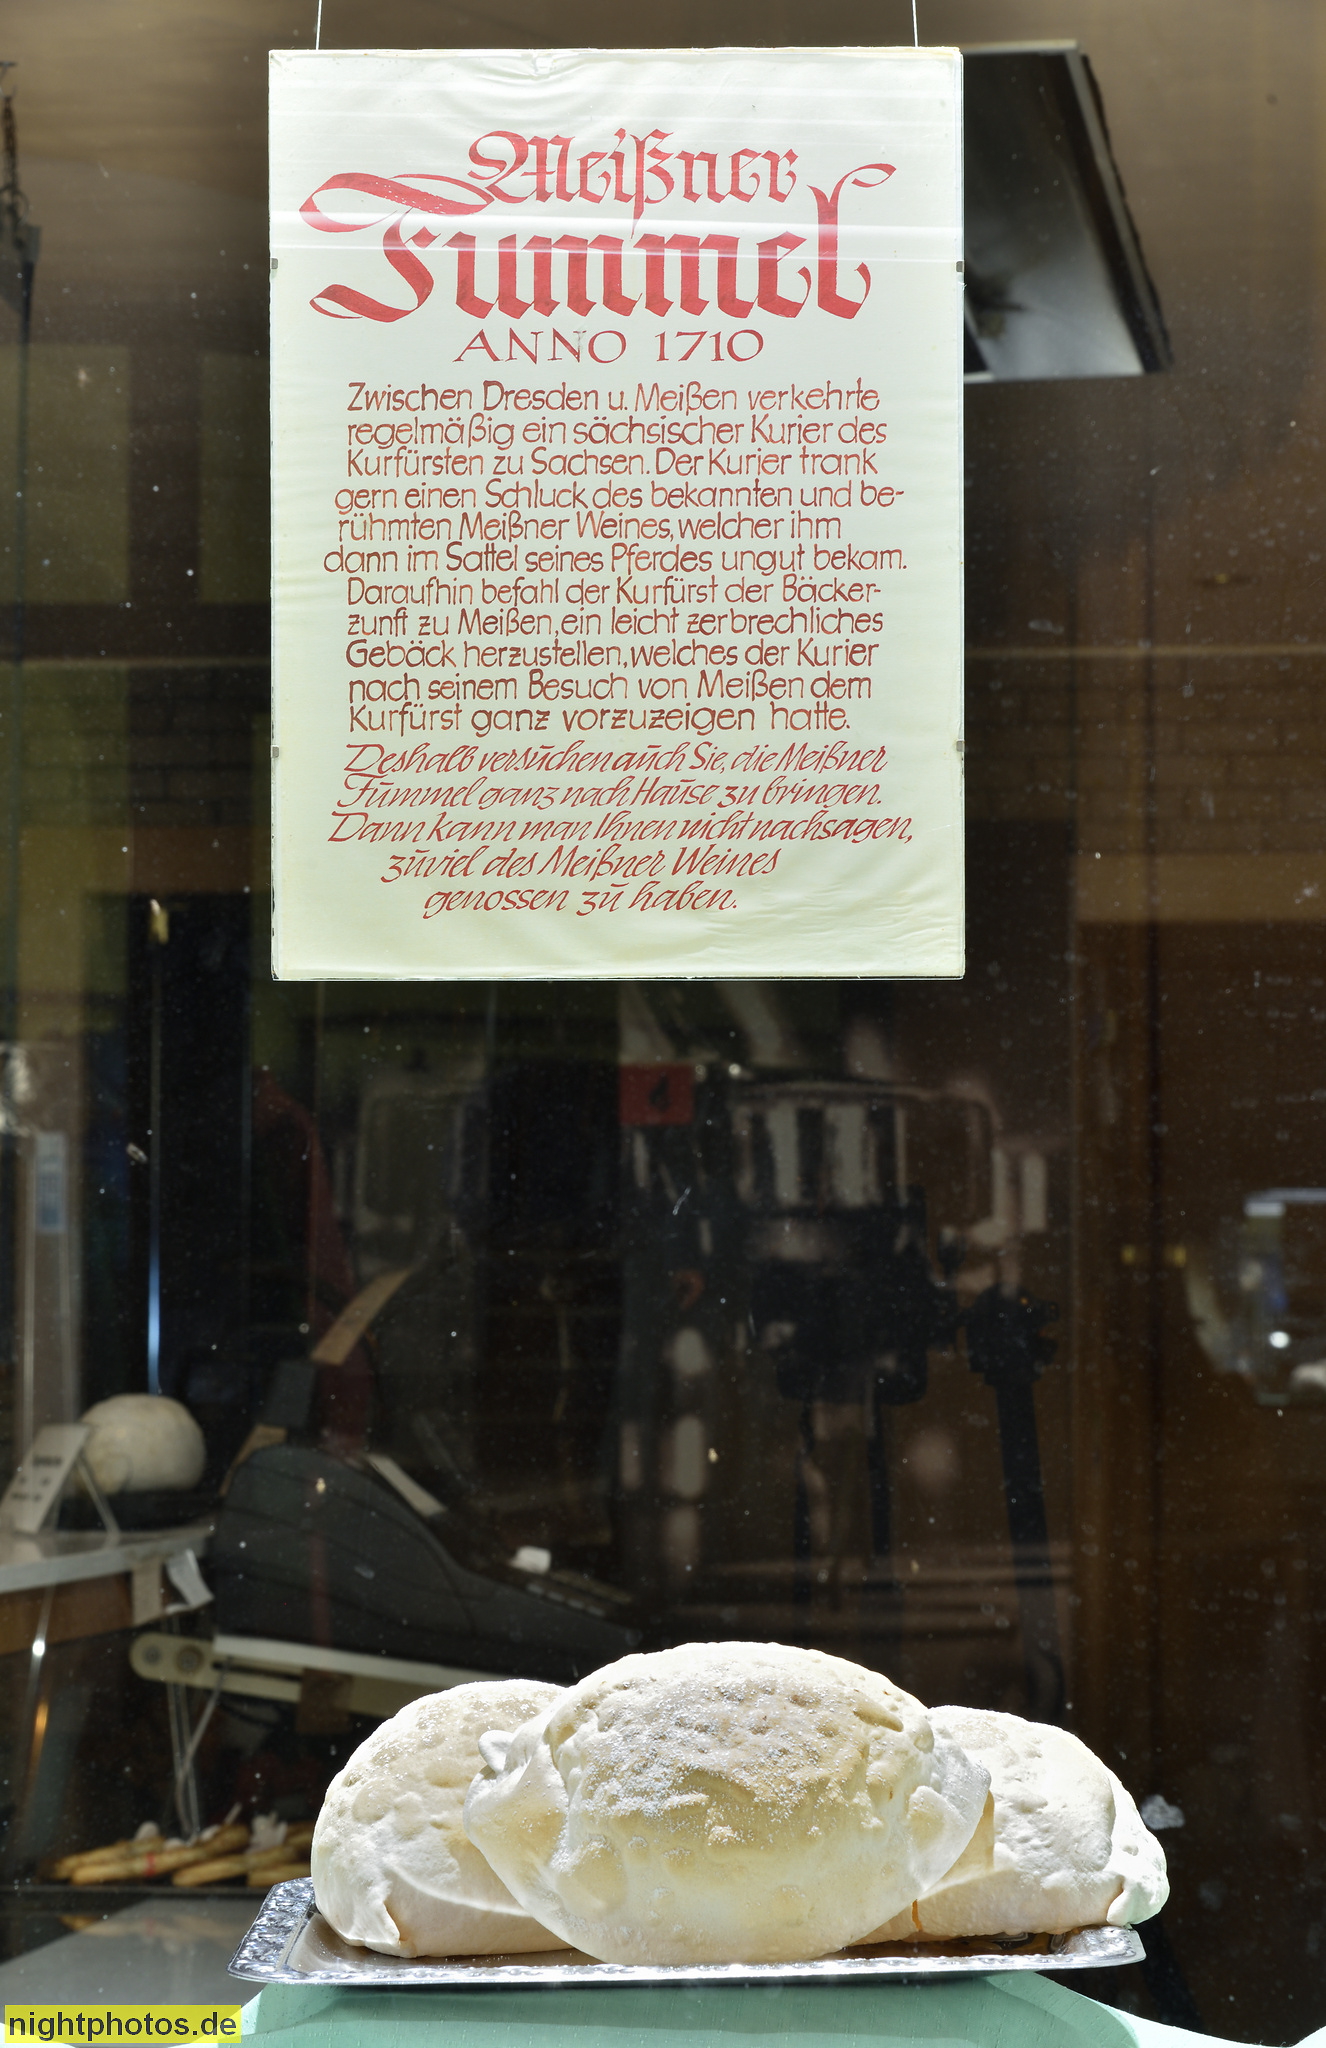 Meißner
Fummel
ANNO 1710
Zwischen Dresden u. Meißen verkehrte
regelmäßig ein sächsischer Kurier des
Kurfürsten zu Sachsen. Der Kurier trank
gern einen Schluck des bekannten und be-
rühmten Meißner Weines, welcher ihm
dann im Sattel seines Pferdes ungut bekam.
Daraufhin befahl der Kurfürst der Bäcker-
zunft zu Meißen, ein leicht zerbrechliches
Gebäck herzustellen, welches der Kurier
nach seinem Besuch von Meißen dem
Kurfürst ganz vorzuzeigen hatte.
Deshalb versuchen auch Sie, die Meißner
Fummel ganz nach Hause zu bringen.
Dann kann man Ihnen nicht nachsagen,
zuviel des Meißner Weines
genossen zu haben.
nightphotos.de